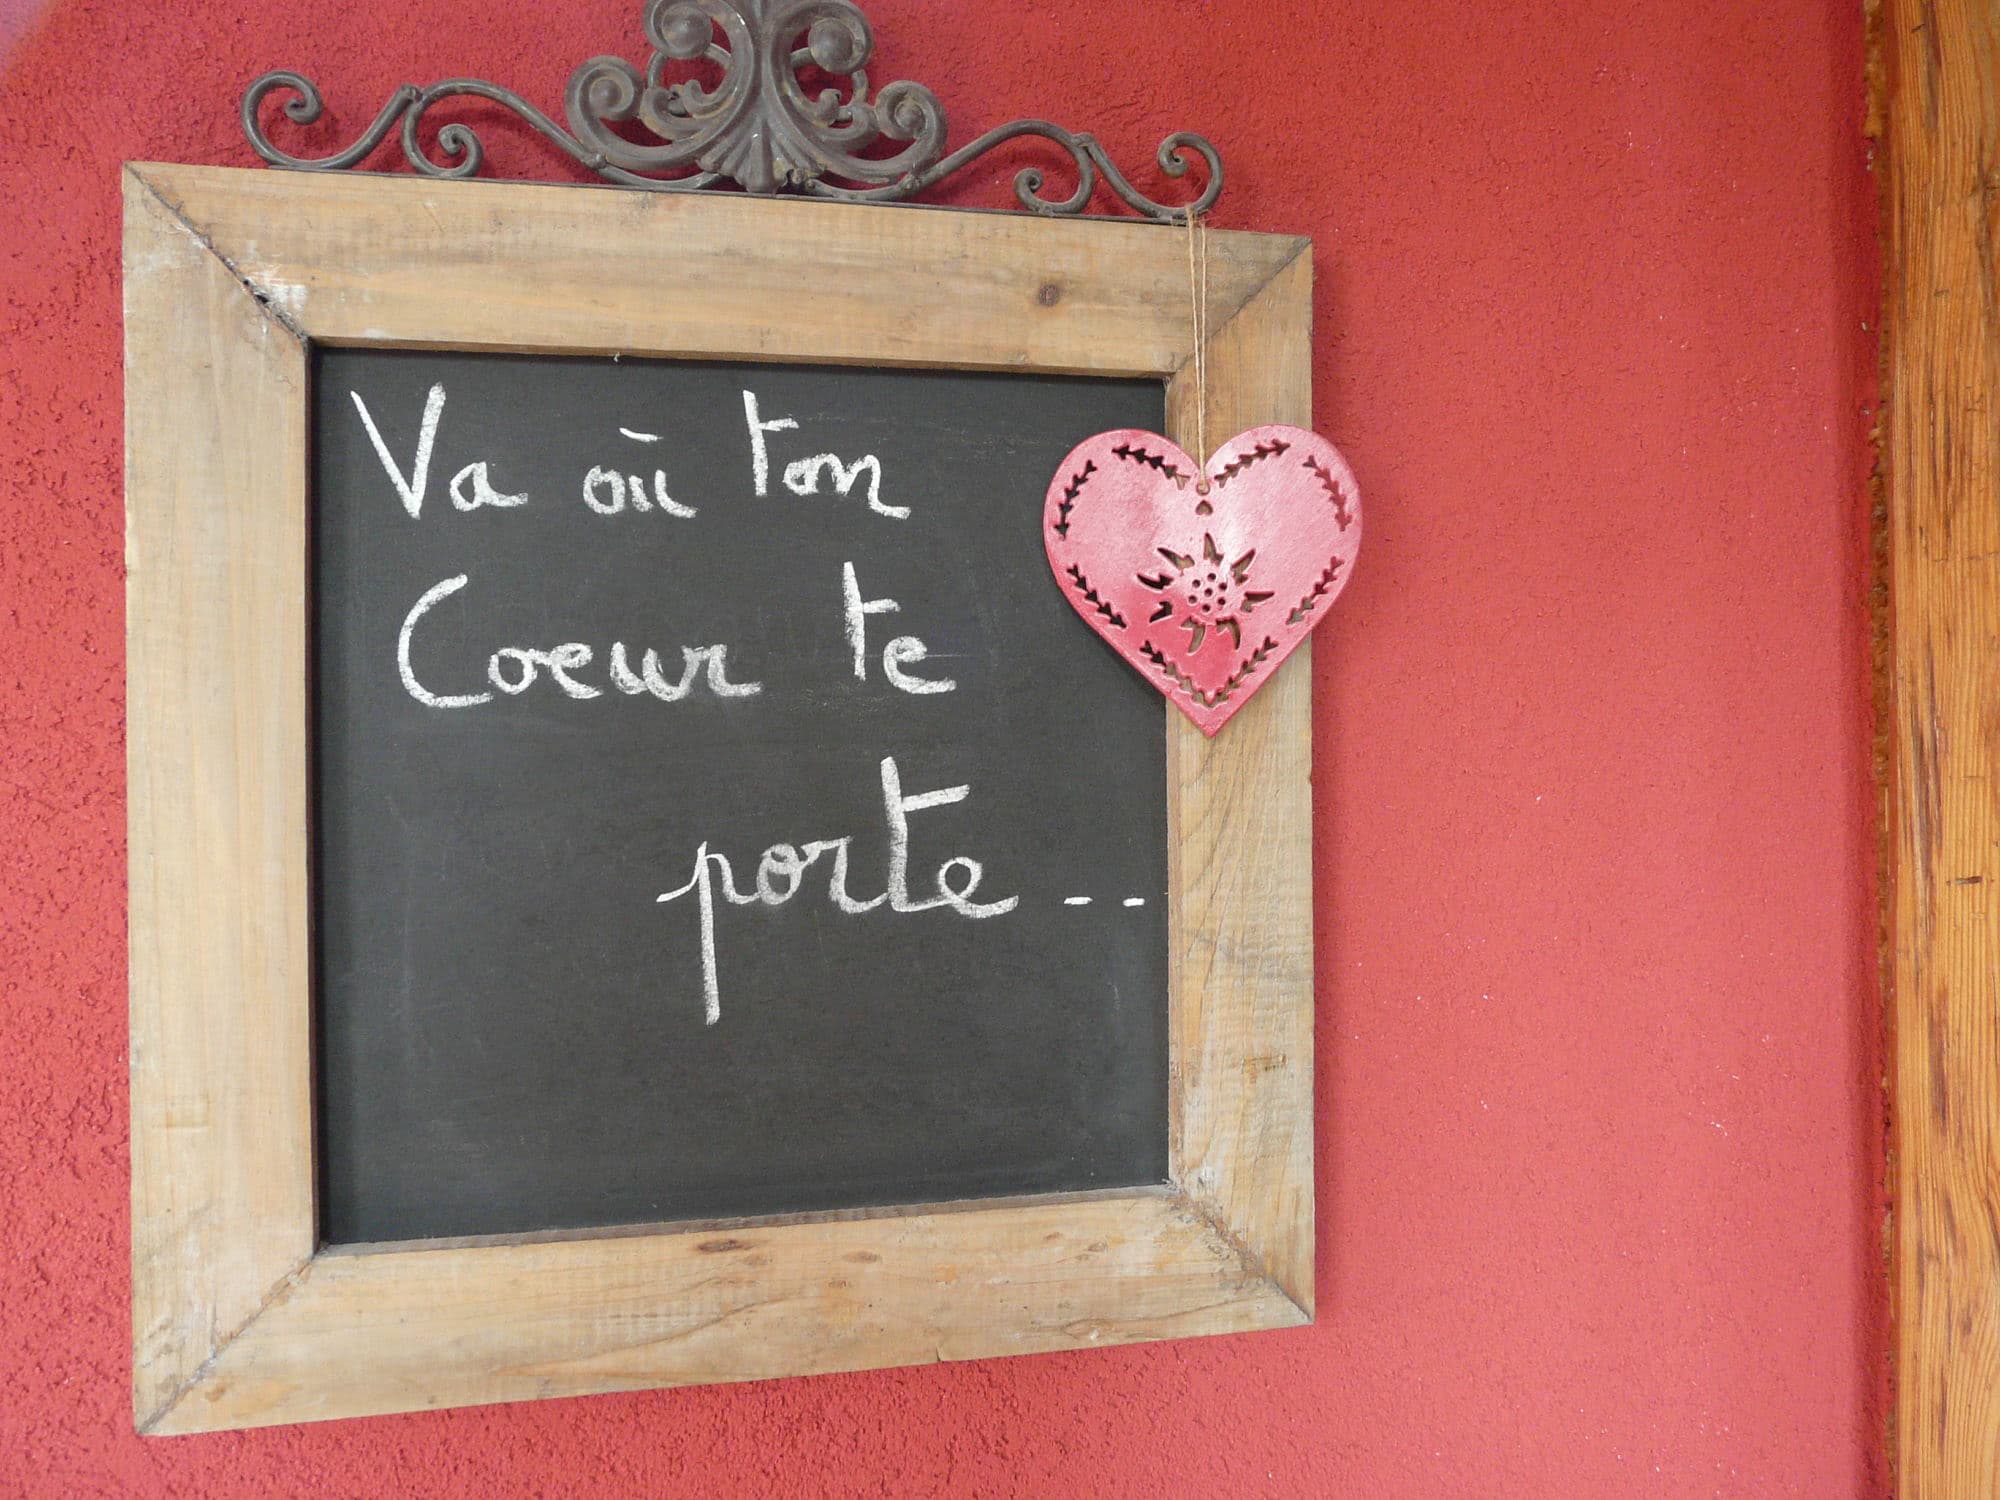 Va où ton
Coeur te
porte --